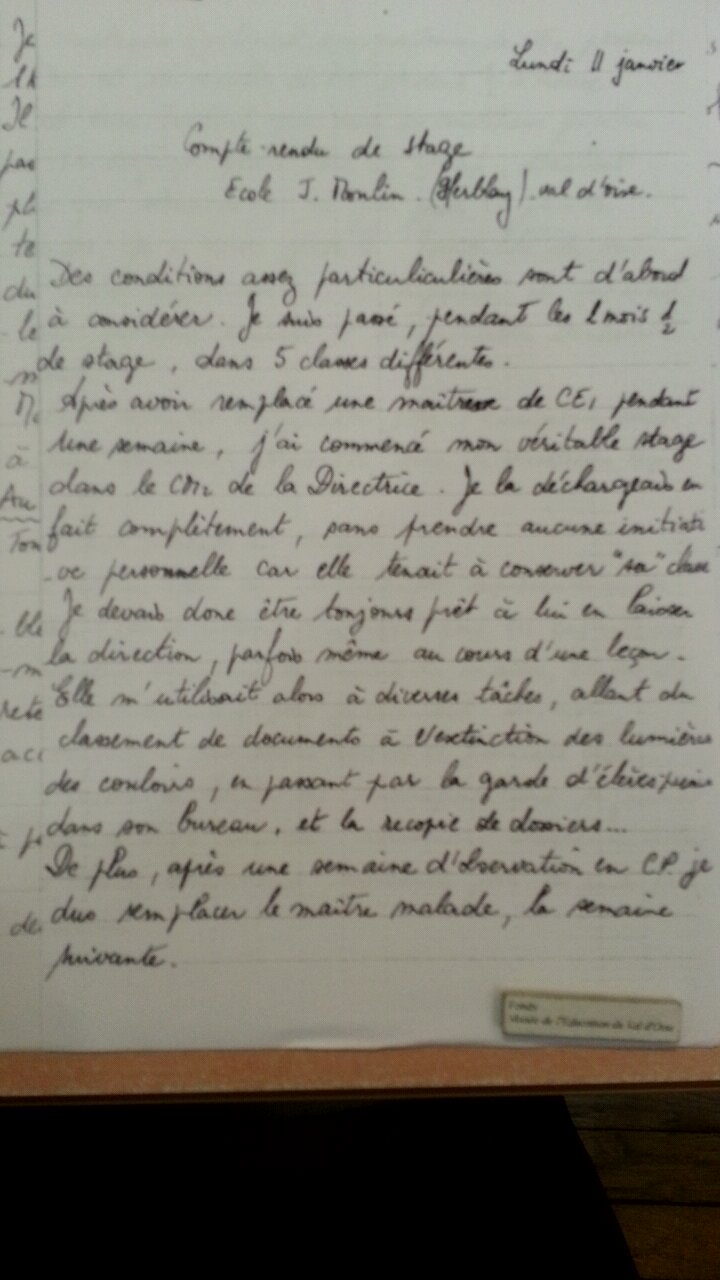 Lundi 11 janvier
Compte-rendu de stage
Ecole J. Moulin. (Herblay). val d'oise.
Des conditions assez particuliculières sont d'abord
à considérer. Je suis passé, pendant les 1 mois 1/2
de stage, dans 5 classes différentes.
Après avoir remplacé une maitresse de CE1 pendant
une semaine, j'ai commencé mon véritable stage
dans le CM2 de la Directrice. Je la déchargeais en
fait complètement, sans prendre aucune initiati
-ve personnelle car elle tenait à conserver "sa" classe
Je devais donc être toujours prêt à lui en laisser
la direction, parfois même au cours d'une leçon.
Elle m'utilisait alors à diverses tâches, allant du
classement de documents à l'extinction des lumières
des couloirs, en passant par la garde d'élèves
dans son bureau, et la recopie de dossiers...
De plus, après une semaine d'observation en CP je
dus remplacer le maître malade, la semaine
suivante.
Fonds
Musée de l'Education du Val d'Oise